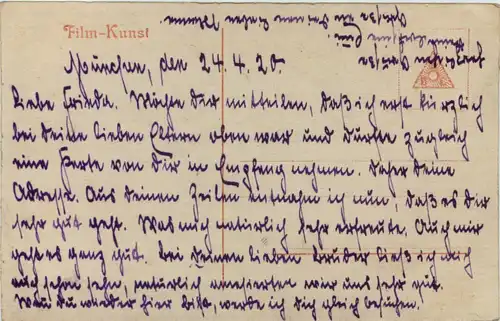 Film-Kunst
München, den 24.4.20.
Liebe Frieda. Möchte Dir mitteilen, daß ich erst kürzlich
bei Deine lieben Eltern oben war und durfte zugleich
eine Karte von Dir in Empfang nehmen. Daher Deine
Adresse. Aus Deinen Zeilen entnahm ich nun, daß es dir
sehr gut geht. Was mich natürlich sehr erfreute. Auch mir
geht es ganz gut. Bei Deinen lieben Bruder ließ ich mich
auch schon sehn, natürlich amüsierten wir uns sehr gut.
Wenn Du wieder hier bist, werde ich Dich gleich besuchen.